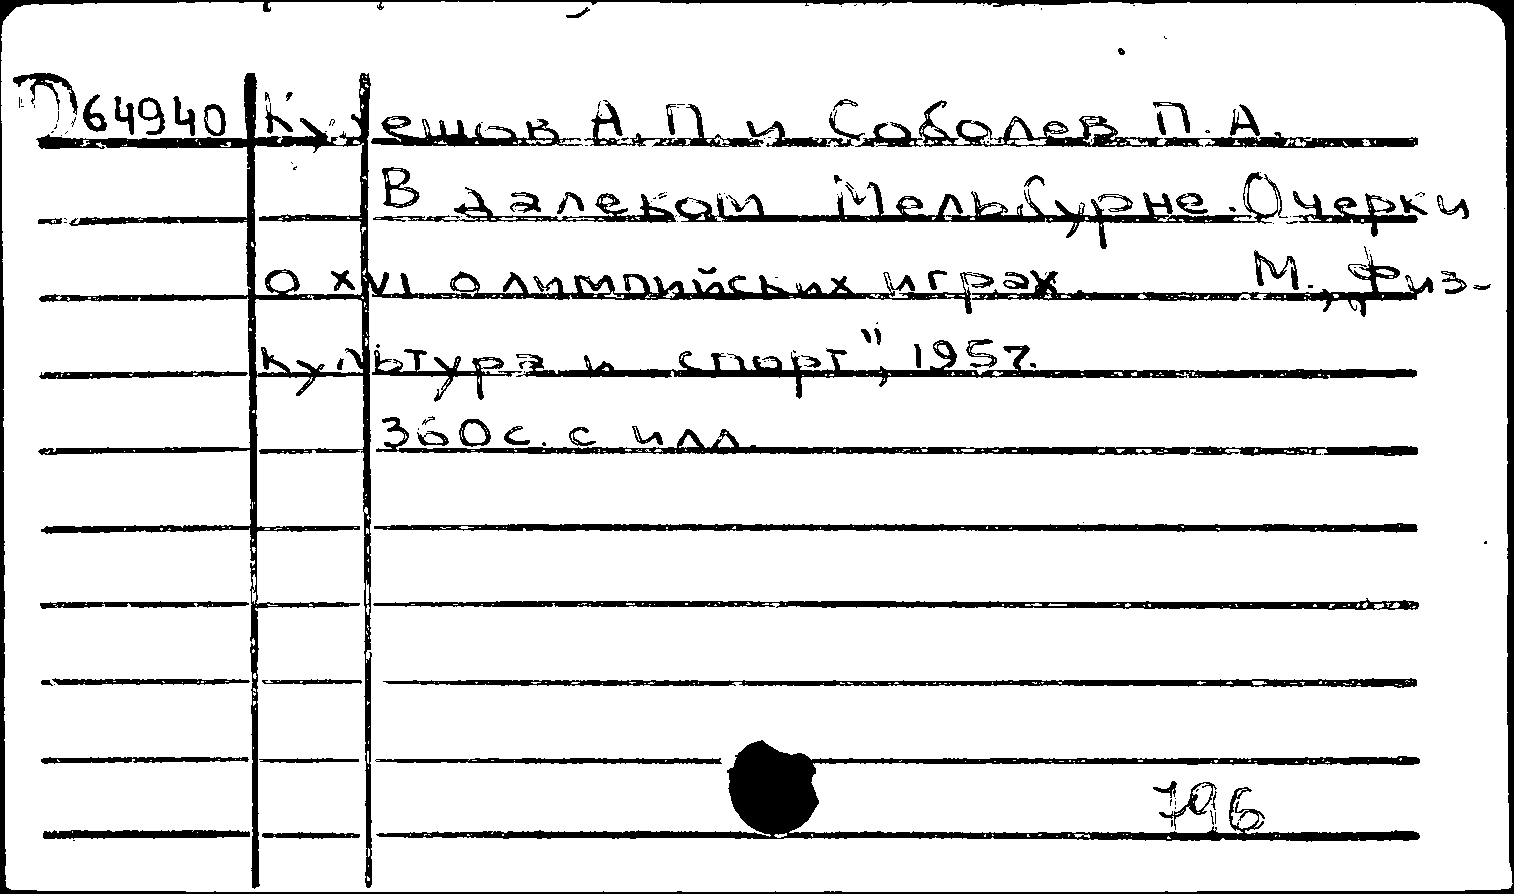 D64940 Кулешов А. П. и Соболев П. А.
В далеком Мельбурне. Очерки
о XVI олимпийских играх. М., „Физ-
культура и спорт", 1957.
360 с. с илл.
796